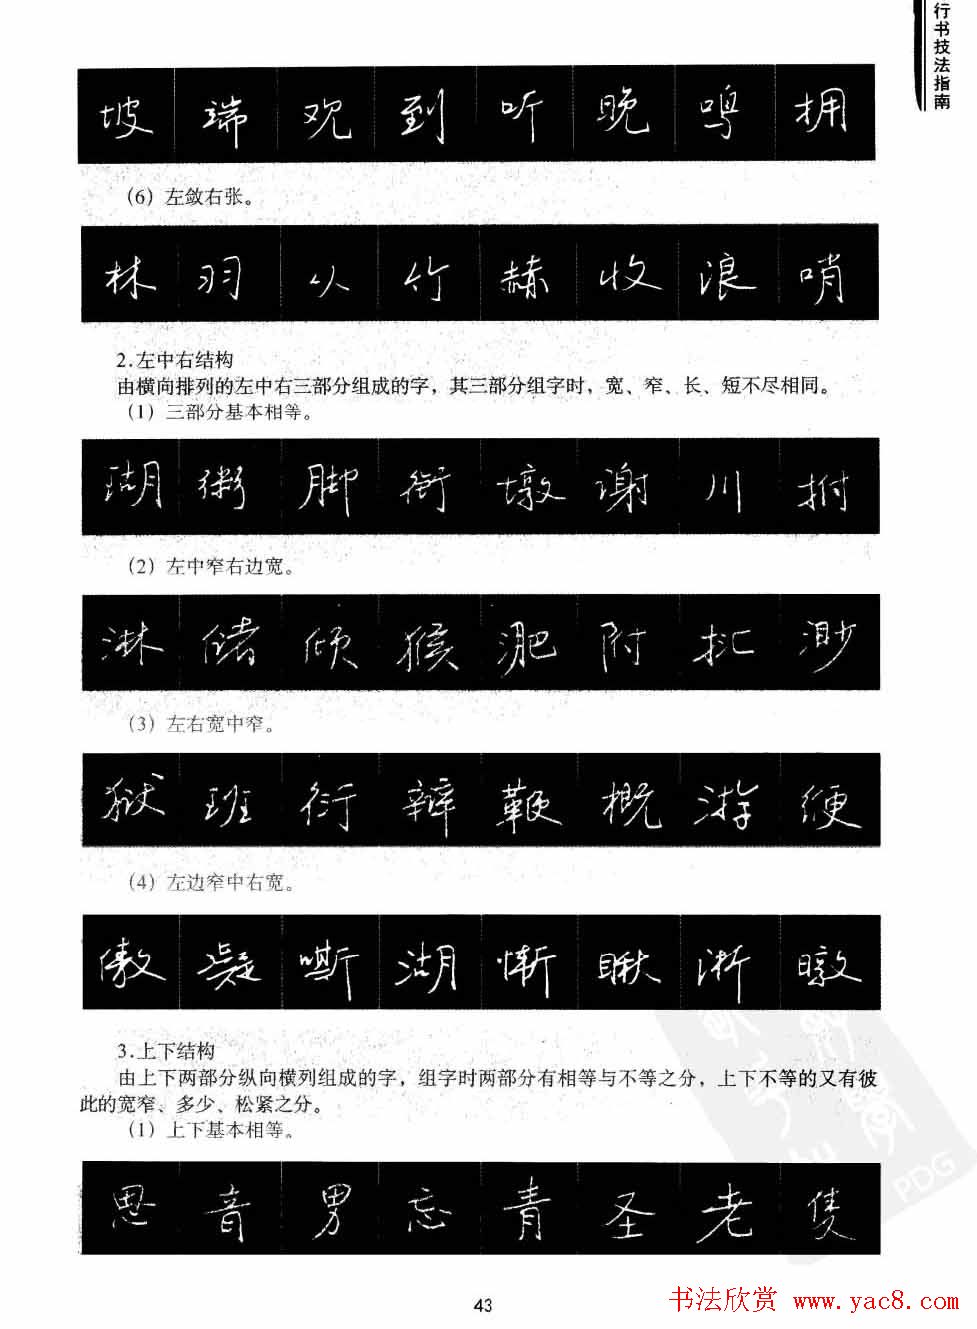 行书技法指南
坡 端 观 到 听 晚 鸣 拥
(6) 左敛右张。
林 羽 从 竹 赫 收 浪 哨
2.左中右结构
由横向排列的左中右三部分组成的字，其三部分组字时，宽、窄、长、短不尽相同。
(1) 三部分基本相等。
瑚 粥 脚 衔 墩 谢 川 拊
(2) 左中窄右边宽。
淋 储 倾 猴 淝 附 抠 渺
(3) 左右宽中窄。
狱 班 衍 辩 鞭 概 游 缏
(4) 左边窄中右宽。
傲 凝 嘶 湖 惭 瞅 淅 暾
3.上下结构
由上下两部分纵向横列组成的字，组字时两部分有相等与不等之分，上下不等的又有彼
此的宽窄、多少、松紧之分。
(1) 上下基本相等。
思 音 男 忘 青 圣 老 隻
PDG
43
书法欣赏 www.yac8.com